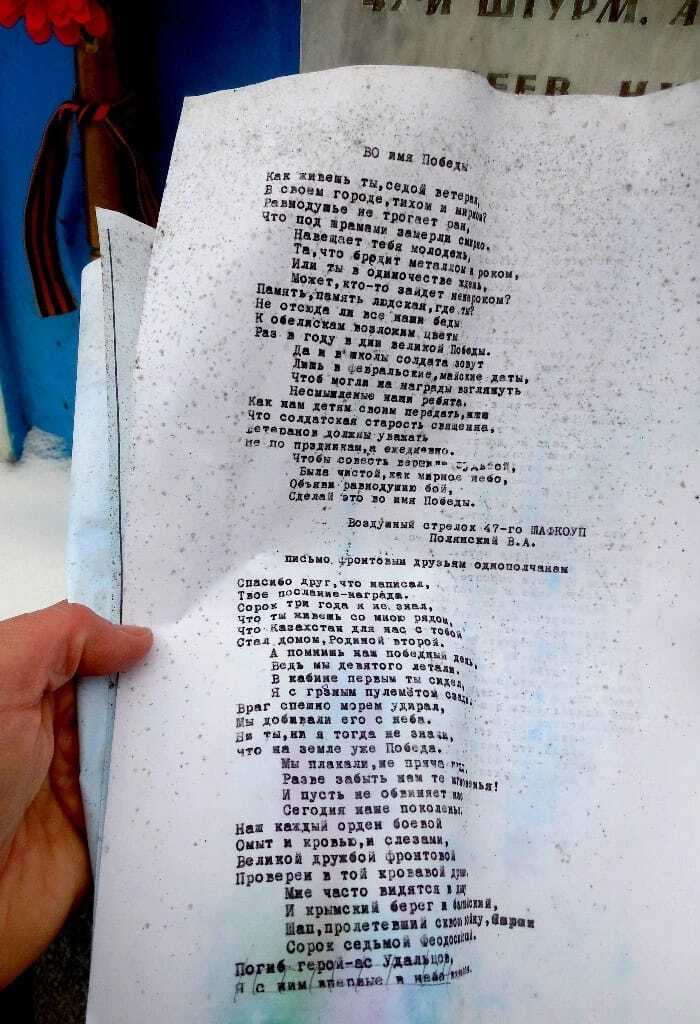 ЧУЙ ШТУРМ. А
ЕЕВ
ВО имя Победы
Как живешь ты,седой ветеран,
В своем городе,тихом и мирном?
Равнодушье не трогает ран,
Что под шрамами замерли смирно.
Навещает тебя молодежь,
Та,что бродит металлом и роком,
Или ты в одиночестве ждешь,
Может,кто-то зайдет ненароком?
Память,память людская,где ты?
Не отсюда ли все наши беды
К обелискам возложим цветы
Раз в году в дни великой Победы.
Да и в школы солдата зовут
Лишь в февральские,майские даты,
Чтоб могли на награды взглянуть
Несмышленые наши ребята.
Как нам детям своим передать,
Что солдатская старость священна,
Ветеранов должны уважать
Не по прздникам,а ежедневно.
Чтобы совесть вершила судьбой,
Была чистой,как мирное небо,
Объяви равнодушию бой,
Сделай это во имя Победы.
Воздушный стрелок 47-го ШАПКОУП
Полянский В.А.
письмо фронтовым друзьям однополчанам
Спасибо друг,что написал,
Твое послание-награда.
Сорок три года я не знал,
Что ты живешь со мною рядом,
Что Казахстан для нас с тобой
Стал домом,Родиной второй.
А помнишь наш победный день,
Ведь мы девятого летали.
В кабине первым ты сидел,
Я с грзным пулемётом сзади.
Враг спешно морем удирал,
Мы добивали его с неба.
Ни ты,ни я тогда не знали,
что на земле уже Победа.
Мы плакали,не пряча
Разве забыть нам те мгновенья!
И пусть не обвиняет нас
Сегодня наше поколенье.
Наш каждый орден боевой
Омыт и кровью,и слезами,
Великой дружбой фронтовой
Проверен в той кровавой
Мне часто видятся в
И крымский берег и
Шап,пролетевший сквозь войну,
Сорок седьмой Феодосийский.
Погиб герой-ас Удальцов,
Я с ним впервые в небо